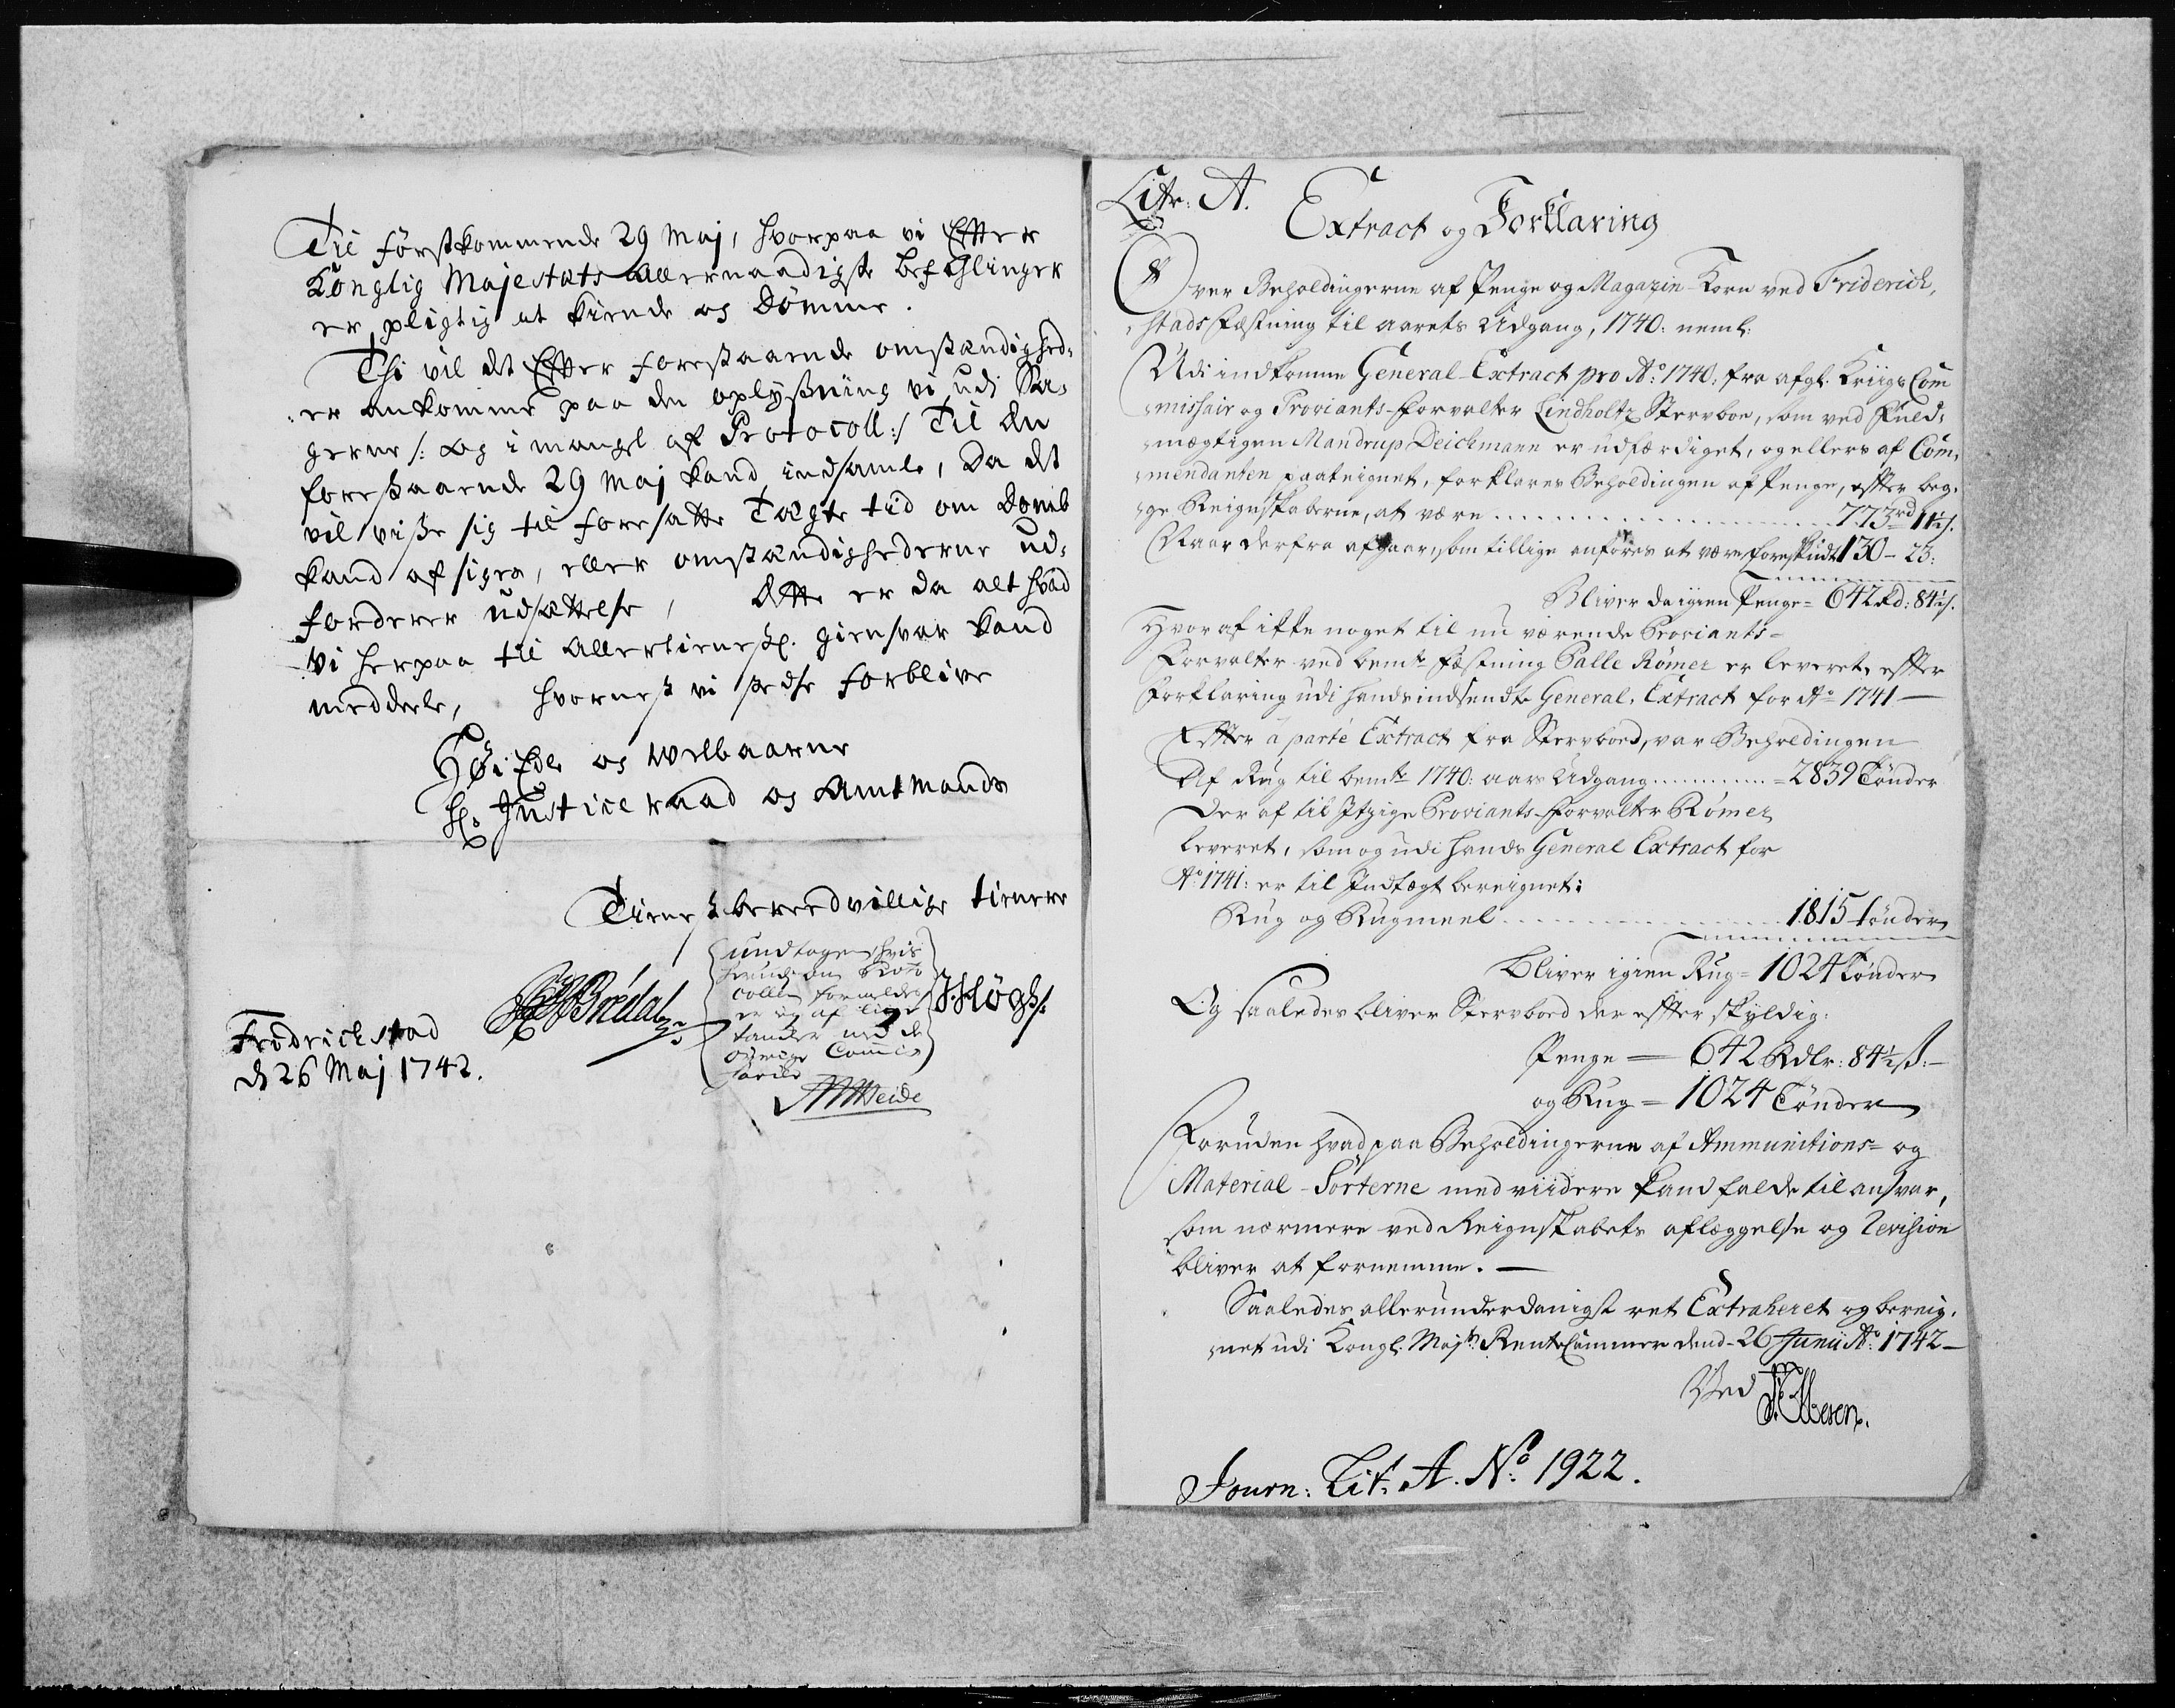 Til førstkommende 29 Maj, hvorpaa vi Efter
Konglig Majestæts allernaadigste befahlinger
er pligtig at kiende og dømme.
Thi vil det Efter forestaaende omstændighed-
er ankomme paa den oplysning vi udi Sa-
gerne /: og i mangel af Protocoll :/ Til den
forestaaende 29 Maj kand indsamle, da det
vil vise sig til foresatte Tægte tid om domb
kand afsiges, eller omstændighederne ud-
fordrer udsættelse, dette er da alt hvad
vi herpaa til allertieneste. giensvar kand
meddeele, hvornest vi stedse forblive
HøiEdle og Welbaarne
Hr. Justice raad og Amtmands
Tienstbereedvillige tienere
undtagen hvis
herudi om Proto
collen formeldes
er og af lige
tancker med de
øvrige Commis
sarier
Bredal
J: Høgh
Weide
Fridrichstad
d 26 Maj 1742.
Litr: A.
Extract og Forklaring
Over Beholdingerne af Penge og Magazin-Korn ved Friderich,
stads Fæstning til aarets Udgang, 1740: neml:
Udi indkomne General-Extract pro Ao: 1740: fra afgl. Kriigs Com
missair og Proviants-Forvalter Lindholtz Stervboe, som ved Fuld-
mægtigen Mandrup Deichmann er udfærdiget, og ellers af Com-
mendanten paateignet, forklares Beholdingen af Penge, efter beg-
ge Reignskaberne, at være ........ 773rd 11½ s.
Naar derfra afgaar, som tillige anføres at være forskudt 130 - 23:
Bliver da igien Penge = 642 Rd: 84½ s.
Hvoraf ikke noget til nu værende Proviants-
Forvalter ved bemte Fæstning Palle Römer er leveret, efter
Forklaring udi hands indsendte General, Extract for Ao 1741 —
Efter à parte Extract fra Stervboed, var Beholdingen
Af Rug til bemte 1740: aars Udgang ........ = 2839 Tønder
Der af til Itzige Proviants-Forvalter Römer
leveret, som og udi hands General Extract for
Ao 1741: er til Indtægt bereignet:
Rug og Rugmeel ........ 1815 tønder
Bliver igien Rug = 1024 Tønder
Og saaledes bliver Stervboed der efter skyldig:
Penge — 642 Rdlr: 84½ ß: —
og Rug = 1024 Tønder
Foruden hvad paa Beholdingerne af Ammunitions- og
Material-Sorterne med viidere kand falde til ansvar,
som nærmere ved Reignskabets aflæggelse og Revision
bliver at fornemme. —
Saaledes allerunderdanigst ret Extraheret og bereig-
net udi Kongl: Maj:ts Rente Cammer dend 26 Junii Ao: 1742 —
Ved
Journ: Lit: A. No: 1922.